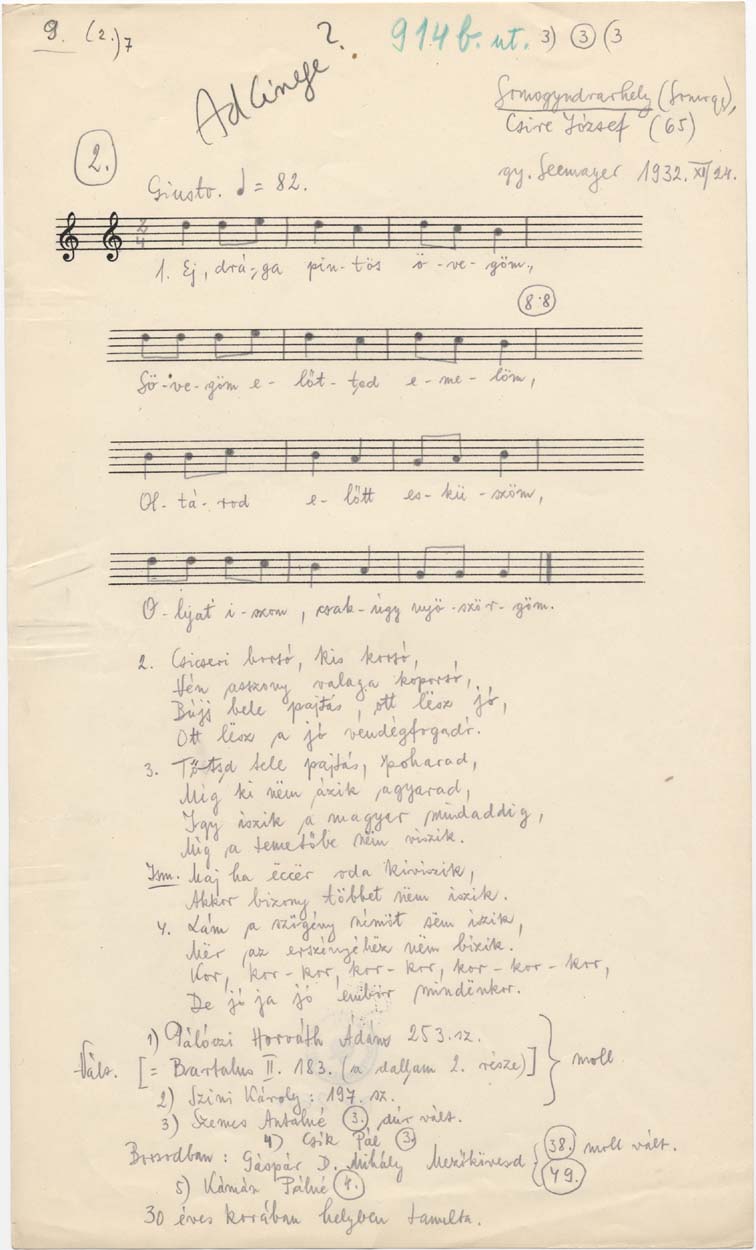 9. (2.)7
Ad Cinege?
914 b. ut. 3) 3 (3
Somogyudvarhely (Somogy),
Csire József (65)
gy. Seemayer 1932. XII/24.
2.
Giusto. ♩ = 82.
2
4
1. Ej, drá-ga pin-tös ö-ve-göm,
8·8
Sö-ve-göm e-lőt-ted e-me-löm,
Ol-tá-rod e-lőtt es-kü-szöm,
O-lyat i-szom, csak-úgy nyö-ször-göm.
2. Csicseri borsó, kis korsó,
Vén asszony valaga koporsó,
Bújj bele pajtás, ott lësz jó,
Ott lësz a jó vendégfogadó.
3. Tőtsd tele pajtás, poharad,
Míg ki nëm ázik agyarad,
Így iszik a magyar mindaddig,
Míg a temetőbe nëm viszik.
Ism. Maj ha ëccër oda kiviszik,
Akkor bizony többet nëm iszik.
4. Lám a szögény németöt sëm iszik,
Mér az erszényéhëz nëm bizik.
Kor, kor-kor, kor-kor, kor-kor-kor,
De jó ja jó embör mindënkor.
1) Pálóczi Horváth Ádám 253. sz.
Vált. [= Bartalus II. 183. (a dallam 2. része)] } moll
2) Szini Károly: 197. sz.
3) Szemes Antalné 3. dúr vált.
4) Csík Pál 3.
Borsodban: Gáspár D. Mihály Mezőkövesd { 38. 49. moll vált.
5) Kámán Pálné 4.
30 éves korában helyben tanulta.